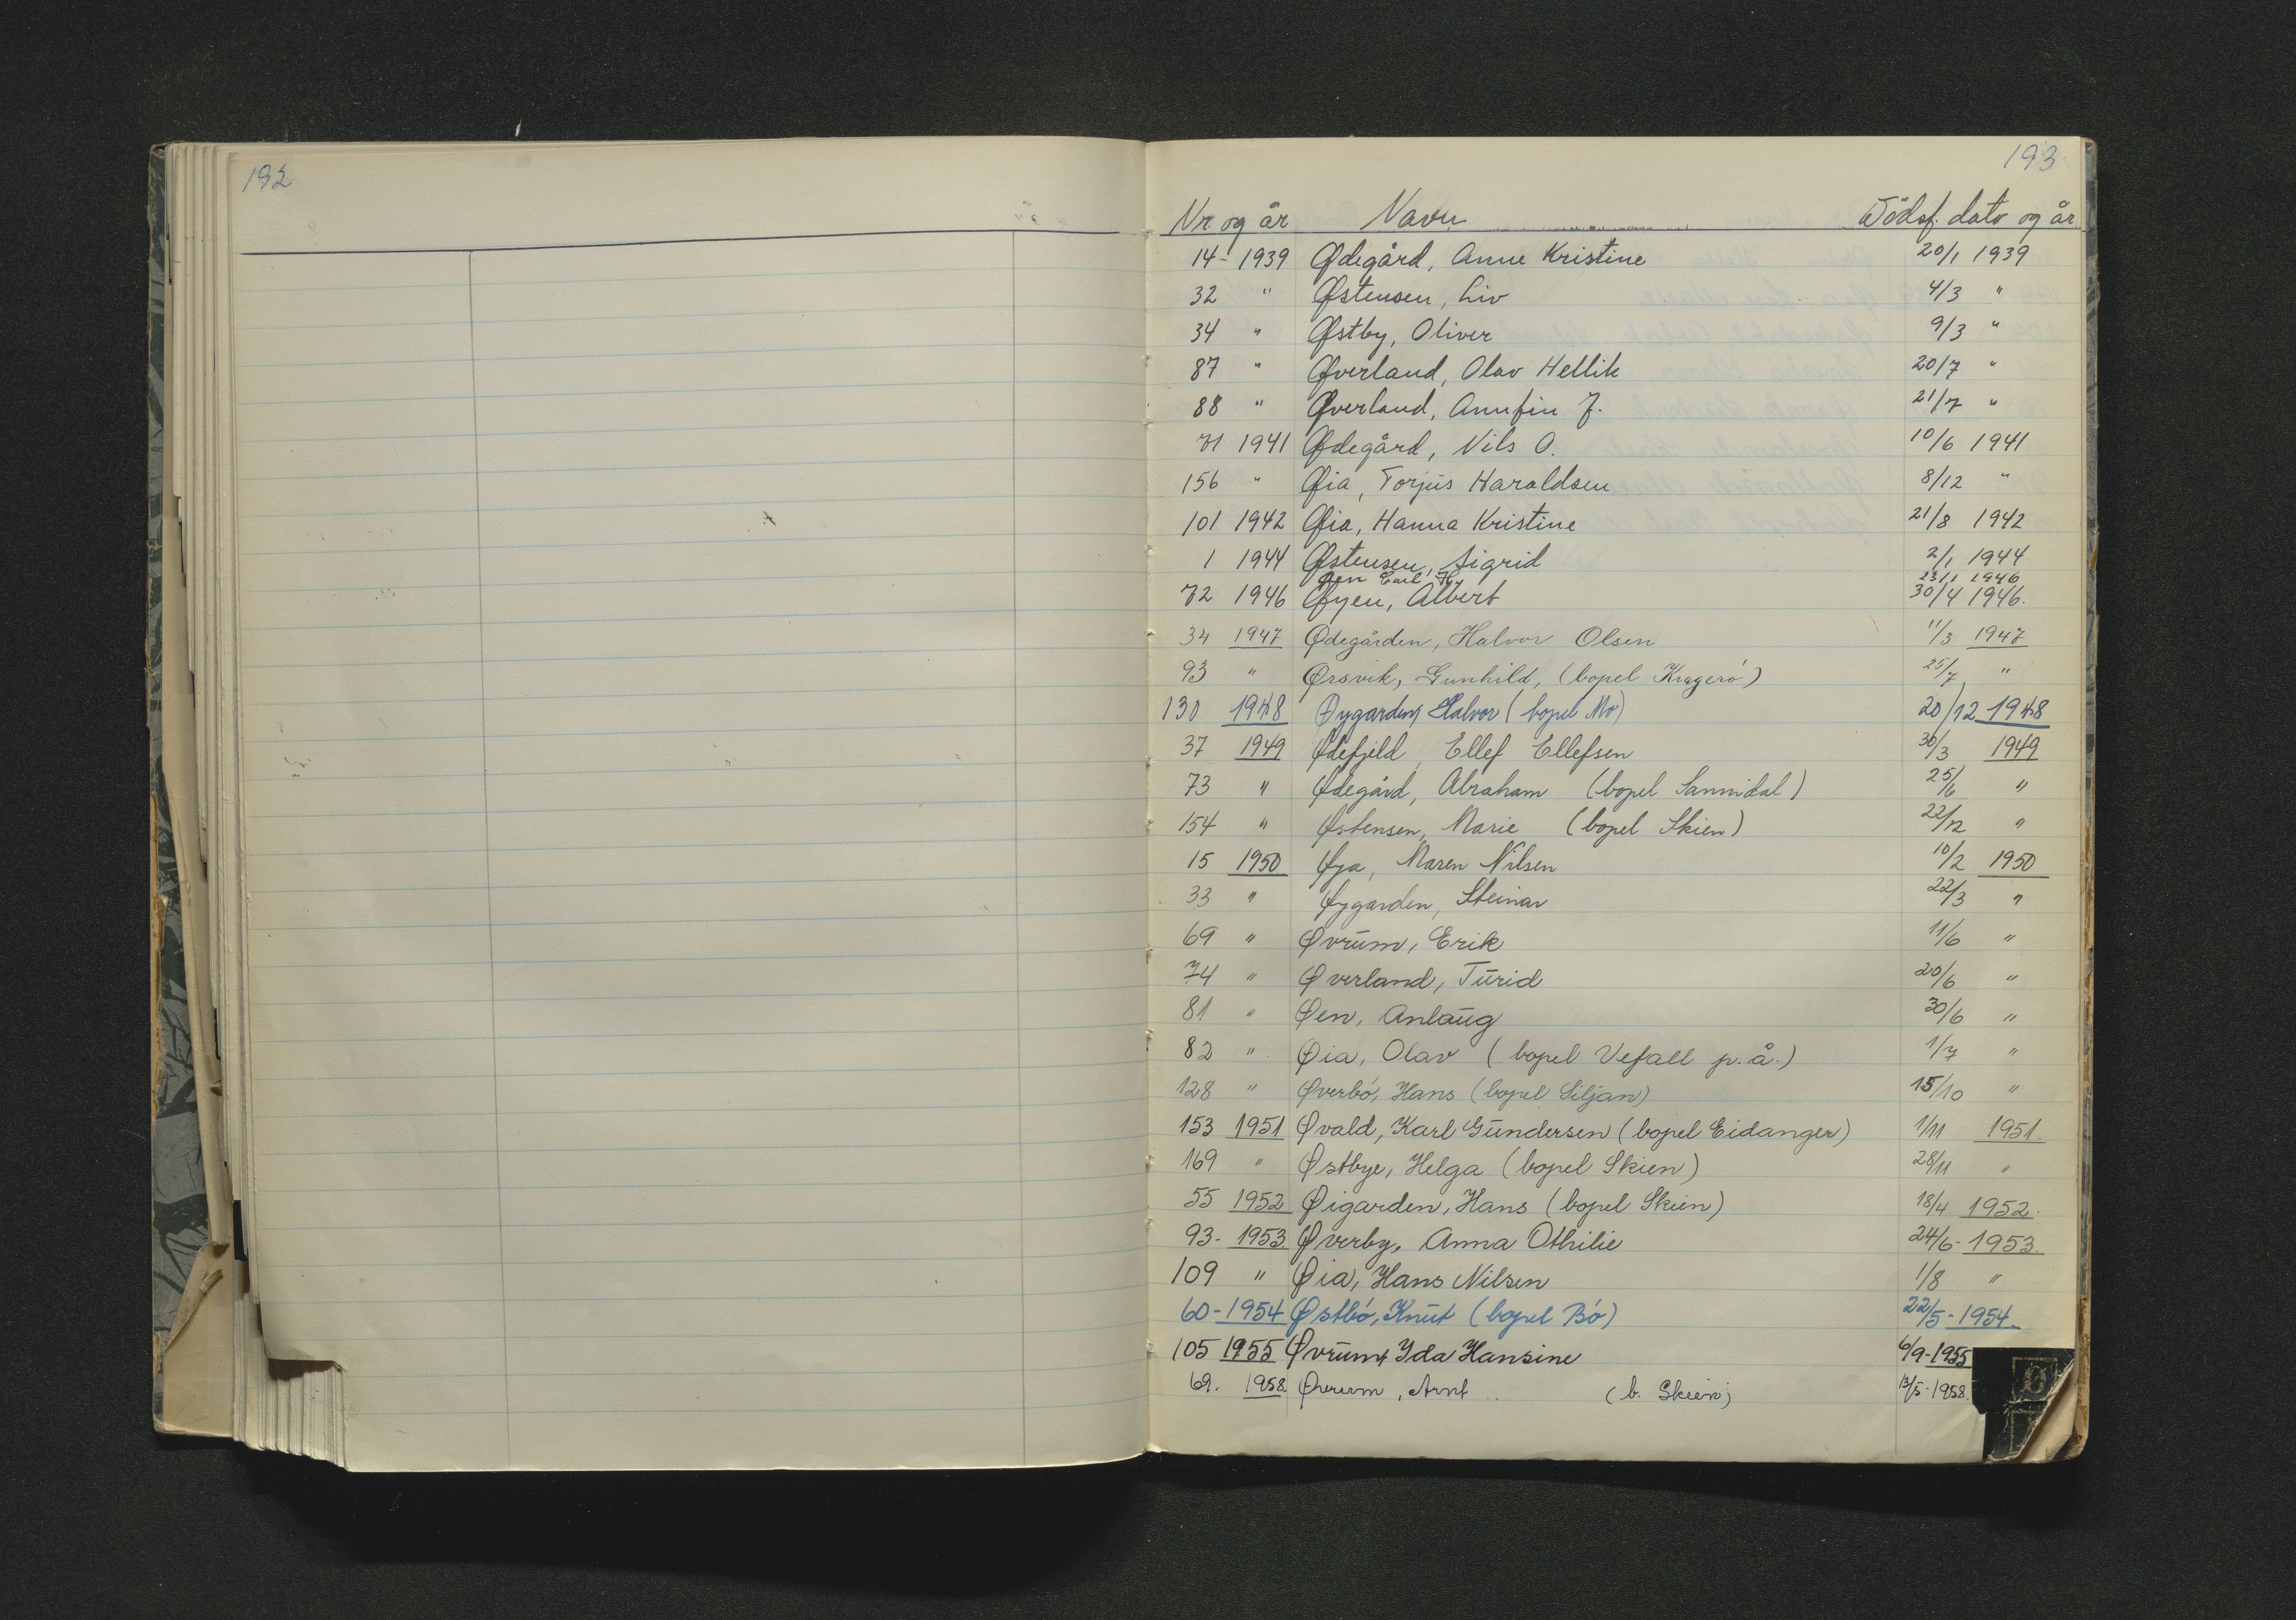 192
193
Nr. og år Navn Dödsf. dato og år
14 - 1939 Ødegård, Anne Kristine 20/1 1939
32 " Østensen, Liv 4/3 "
34 " Østby, Oliver 9/3 "
87 " Øverland, Olav Hellik 20/7 "
88 " Øverland, Annfin J. 21/7 "
71 1941 Ødegård, Nils O. 10/6 1941
156 " Øia, Torjus Haraldsen 8/12 "
101 1942 Øia, Hanna Kristine 21/8 1942
1 1944 Østensen, Sigrid 2/1 1944
Øen Carl 23/1 1946
72 1946 Øyen, Albert 30/4 1946.
34 1947 Ødegården, Halvor Olsen 11/3 1947
93 " Ørsvik, Gunhild, (bopel Kragerö) 25/7 "
130 1948 Øygarden, Halvor (bopel Mo) 20/12 1948
37 1949 Ødefjeld, Ellef Ellefsen 30/3 1949
73 " Ødegård, Abraham (bopel Sannidal) 25/6 "
154 " Østensen, Marie (bopel Skien) 22/12 "
15 1950 Øya, Maren Nilsen 10/2 1950
33 " Øygarden, Steinar 22/3 "
69 " Øvrum, Erik 11/6 "
74 " Øverland, Turid 20/6 "
81 " Øen, Anlaug 30/6 "
82 " Øia, Olav (bopel Vefall p.å.) 1/7 "
128 " Øverbö, Hans (bopel Siljan) 15/10 "
153 1951 Øvald, Karl Gundersen (bopel Eidanger) 1/11 1951.
169 " Østbye, Helga (bopel Skien) 28/11 "
55 1952 Øigarden, Hans (bopel Skien) 18/4 1952.
93 - 1953. Øverby, Anna Othilie 24/6 - 1953.
109 " Øia, Hans Nilsen 1/8 "
60 - 1954 Østbö, Knut (bopel Bö) 22/5 - 1954.
105 1955 Øvrum, Yda Hansine 6/9 - 1955
69. 1958. Øverum, Arnt (b. Skien) 13/5 - 1958.